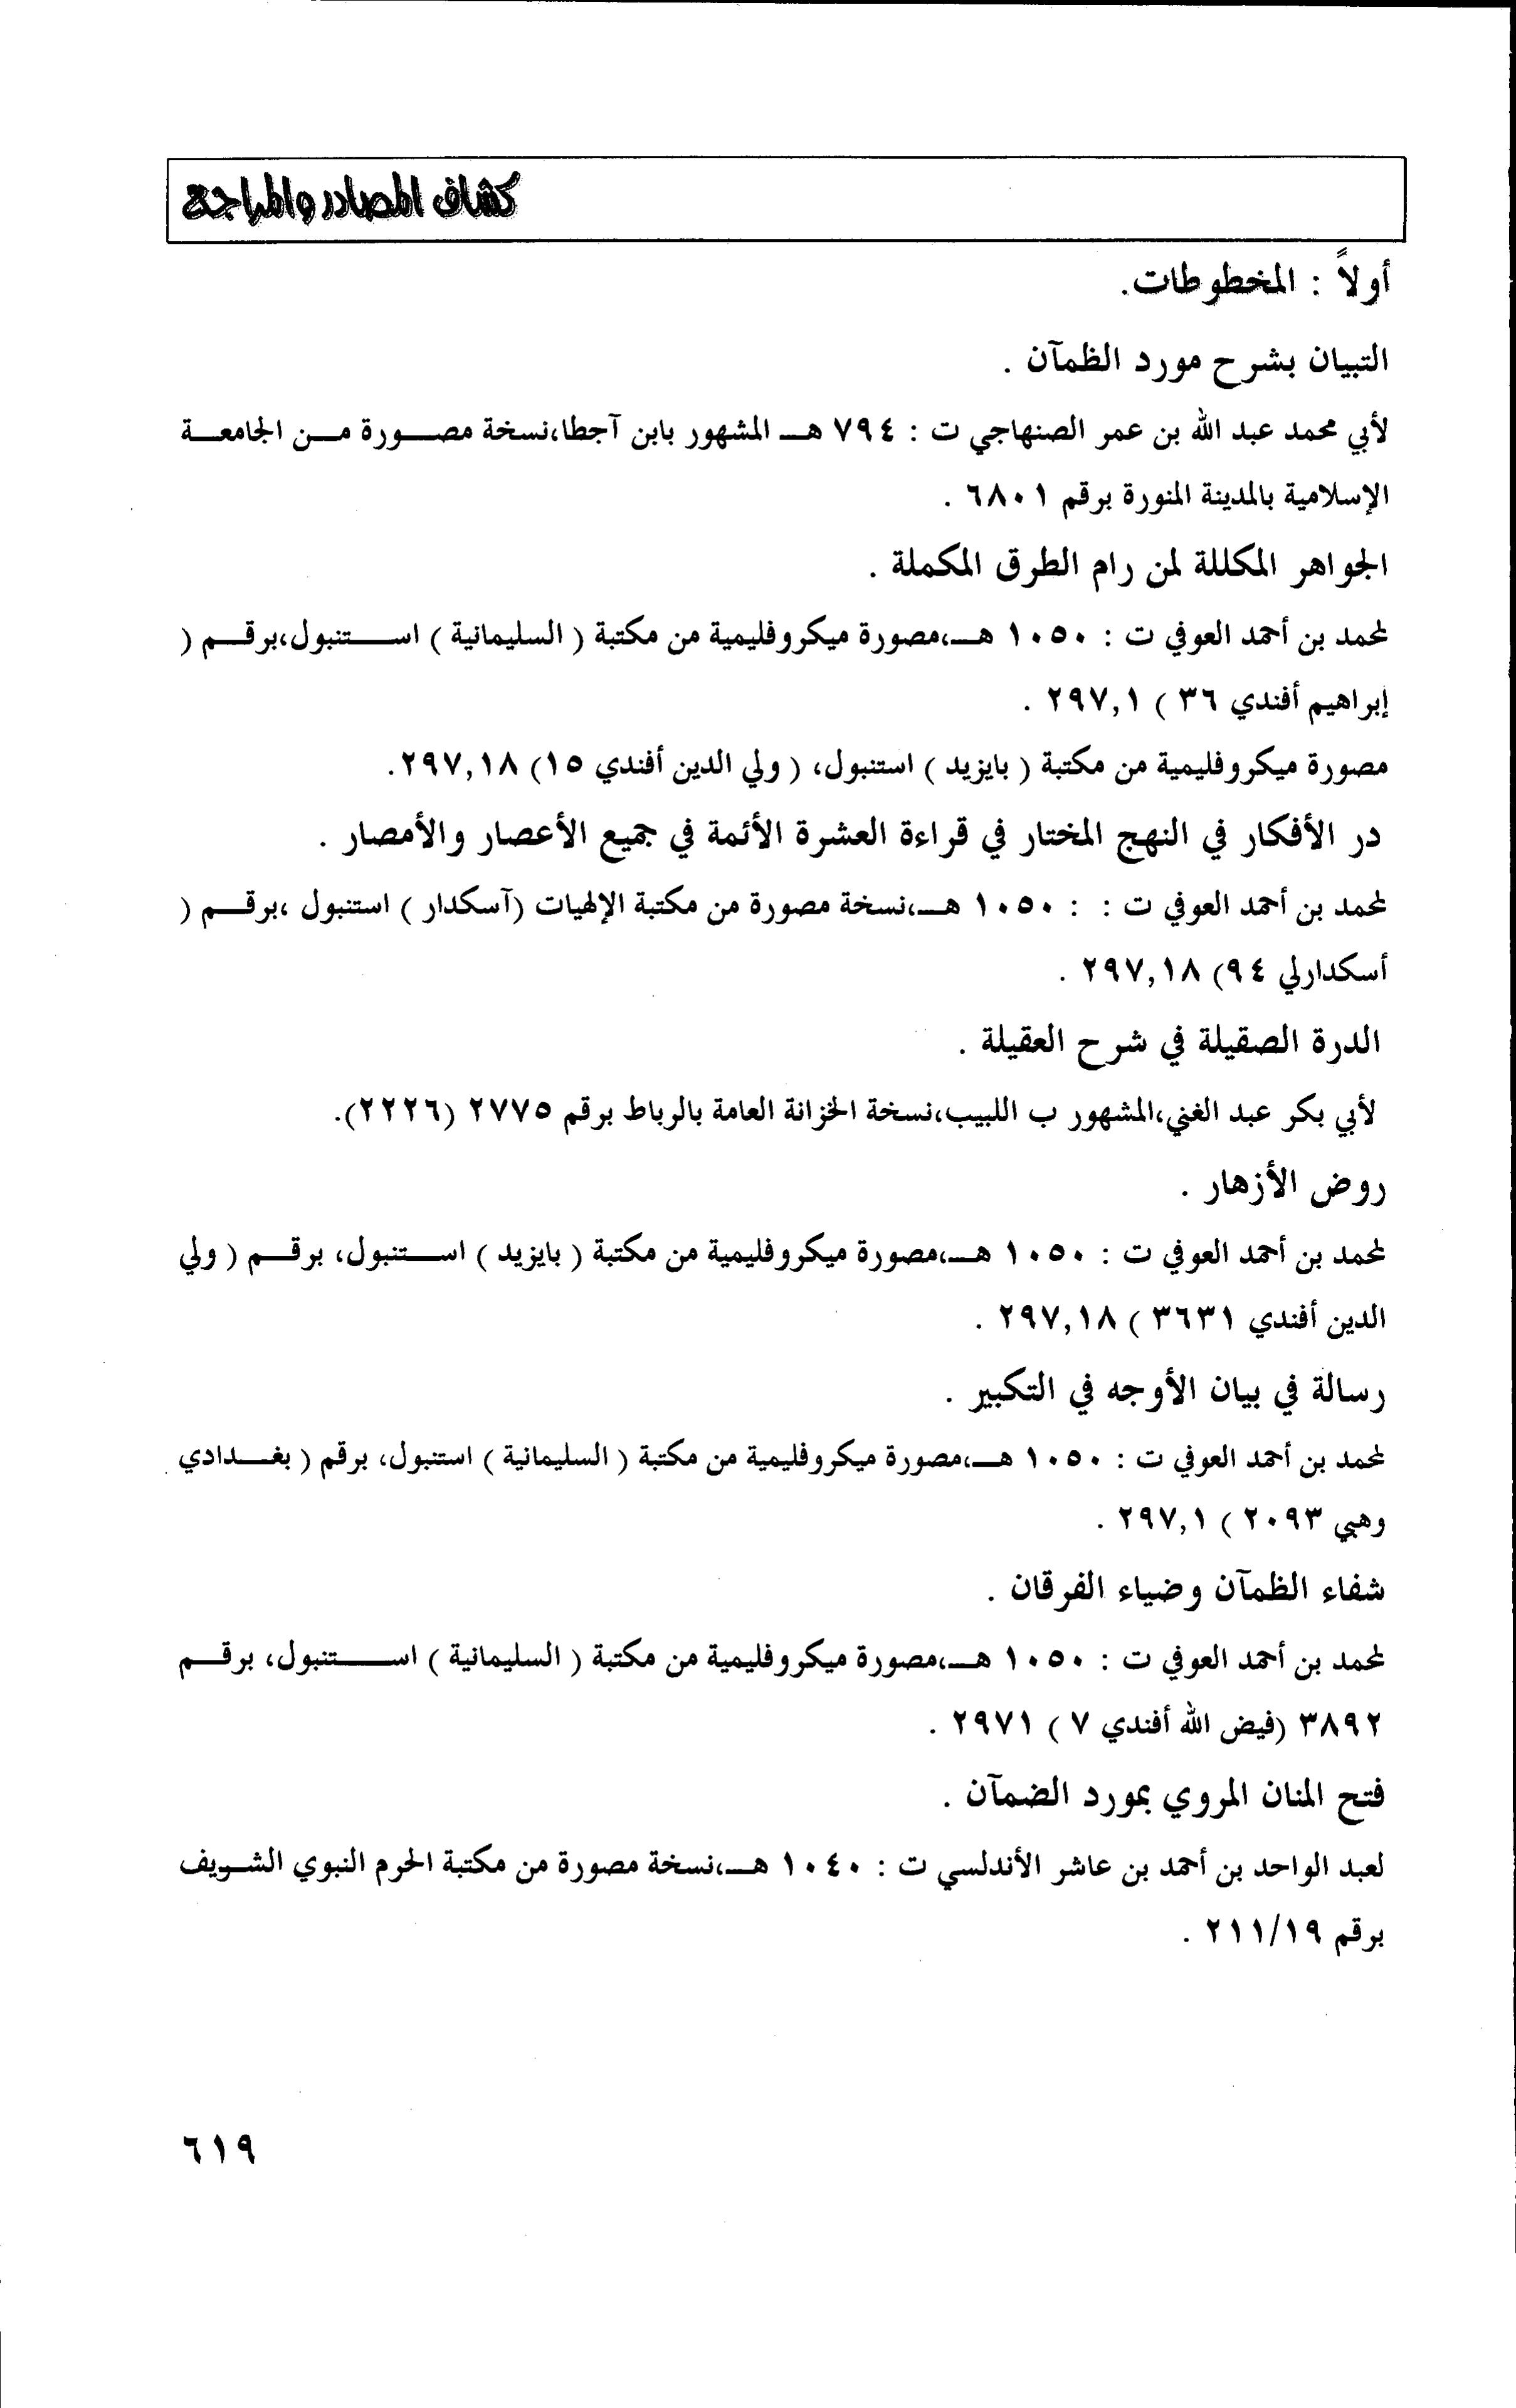 كشاف المصادر والمراجع
أولاً : المخطوطات.
التبيان بشرح مورد الظمآن .
لأبي محمد عبد الله بن عمر الصنهاجي ت : ٧٩٤ هـ المشهور بابن آجطا،نسخة مصورة من الجامعة
الإسلامية بالمدينة المنورة برقم ٦٨٠١ .
الجواهر المكللة لمن رام الطرق المكملة .
لمحمد بن أحمد العوفي ت : ١٠٥٠ هـ،مصورة ميكروفليمية من مكتبة ( السليمانية ) استنبول،برقم (
إبراهيم أفندي ٣٦ ) ٢٩٧,١ .
مصورة ميكروفليمية من مكتبة ( بايزيد ) استنبول، ( ولي الدين أفندي ١٥) ٢٩٧,١٨.
در الأفكار في النهج المختار في قراءة العشرة الأئمة في جميع الأعصار والأمصار .
لمحمد بن أحمد العوفي ت : : ١٠٥٠ هـ،نسخة مصورة من مكتبة الإلهيات (آسكدار ) استنبول ،برقم (
أسكدارلي ٩٤) ٢٩٧,١٨ .
الدرة الصقيلة في شرح العقيلة .
لأبي بكر عبد الغني،المشهور ب اللبيب،نسخة الخزانة العامة بالرباط برقم ٢٧٧٥ (٢٢٢٦).
روض الأزهار .
لمحمد بن أحمد العوفي ت : ١٠٥٠ هـ،مصورة ميكروفليمية من مكتبة ( بايزيد ) استنبول، برقم ( ولي
الدين أفندي ٣٦٣١ ) ٢٩٧,١٨ .
رسالة في بيان الأوجه في التكبير .
لمحمد بن أحمد العوفي ت : ١٠٥٠ هـ،مصورة ميكروفليمية من مكتبة ( السليمانية ) استنبول، برقم ( بغدادي
وهبي ٢٠٩٣ ) ٢٩٧,١ .
شفاء الظمآن وضياء الفرقان .
لمحمد بن أحمد العوفي ت : ١٠٥٠ هـ،مصورة ميكروفليمية من مكتبة ( السليمانية ) استنبول، برقم
٣٨٩٢ (فيض الله أفندي ٧ ) ٢٩٧١ .
فتح المنان المروي بمورد الضمآن .
لعبد الواحد بن أحمد بن عاشر الأندلسي ت : ١٠٤٠ هـ،نسخة مصورة من مكتبة الحرم النبوي الشريف
برقم ٢١١/١٩ .
٦١٩